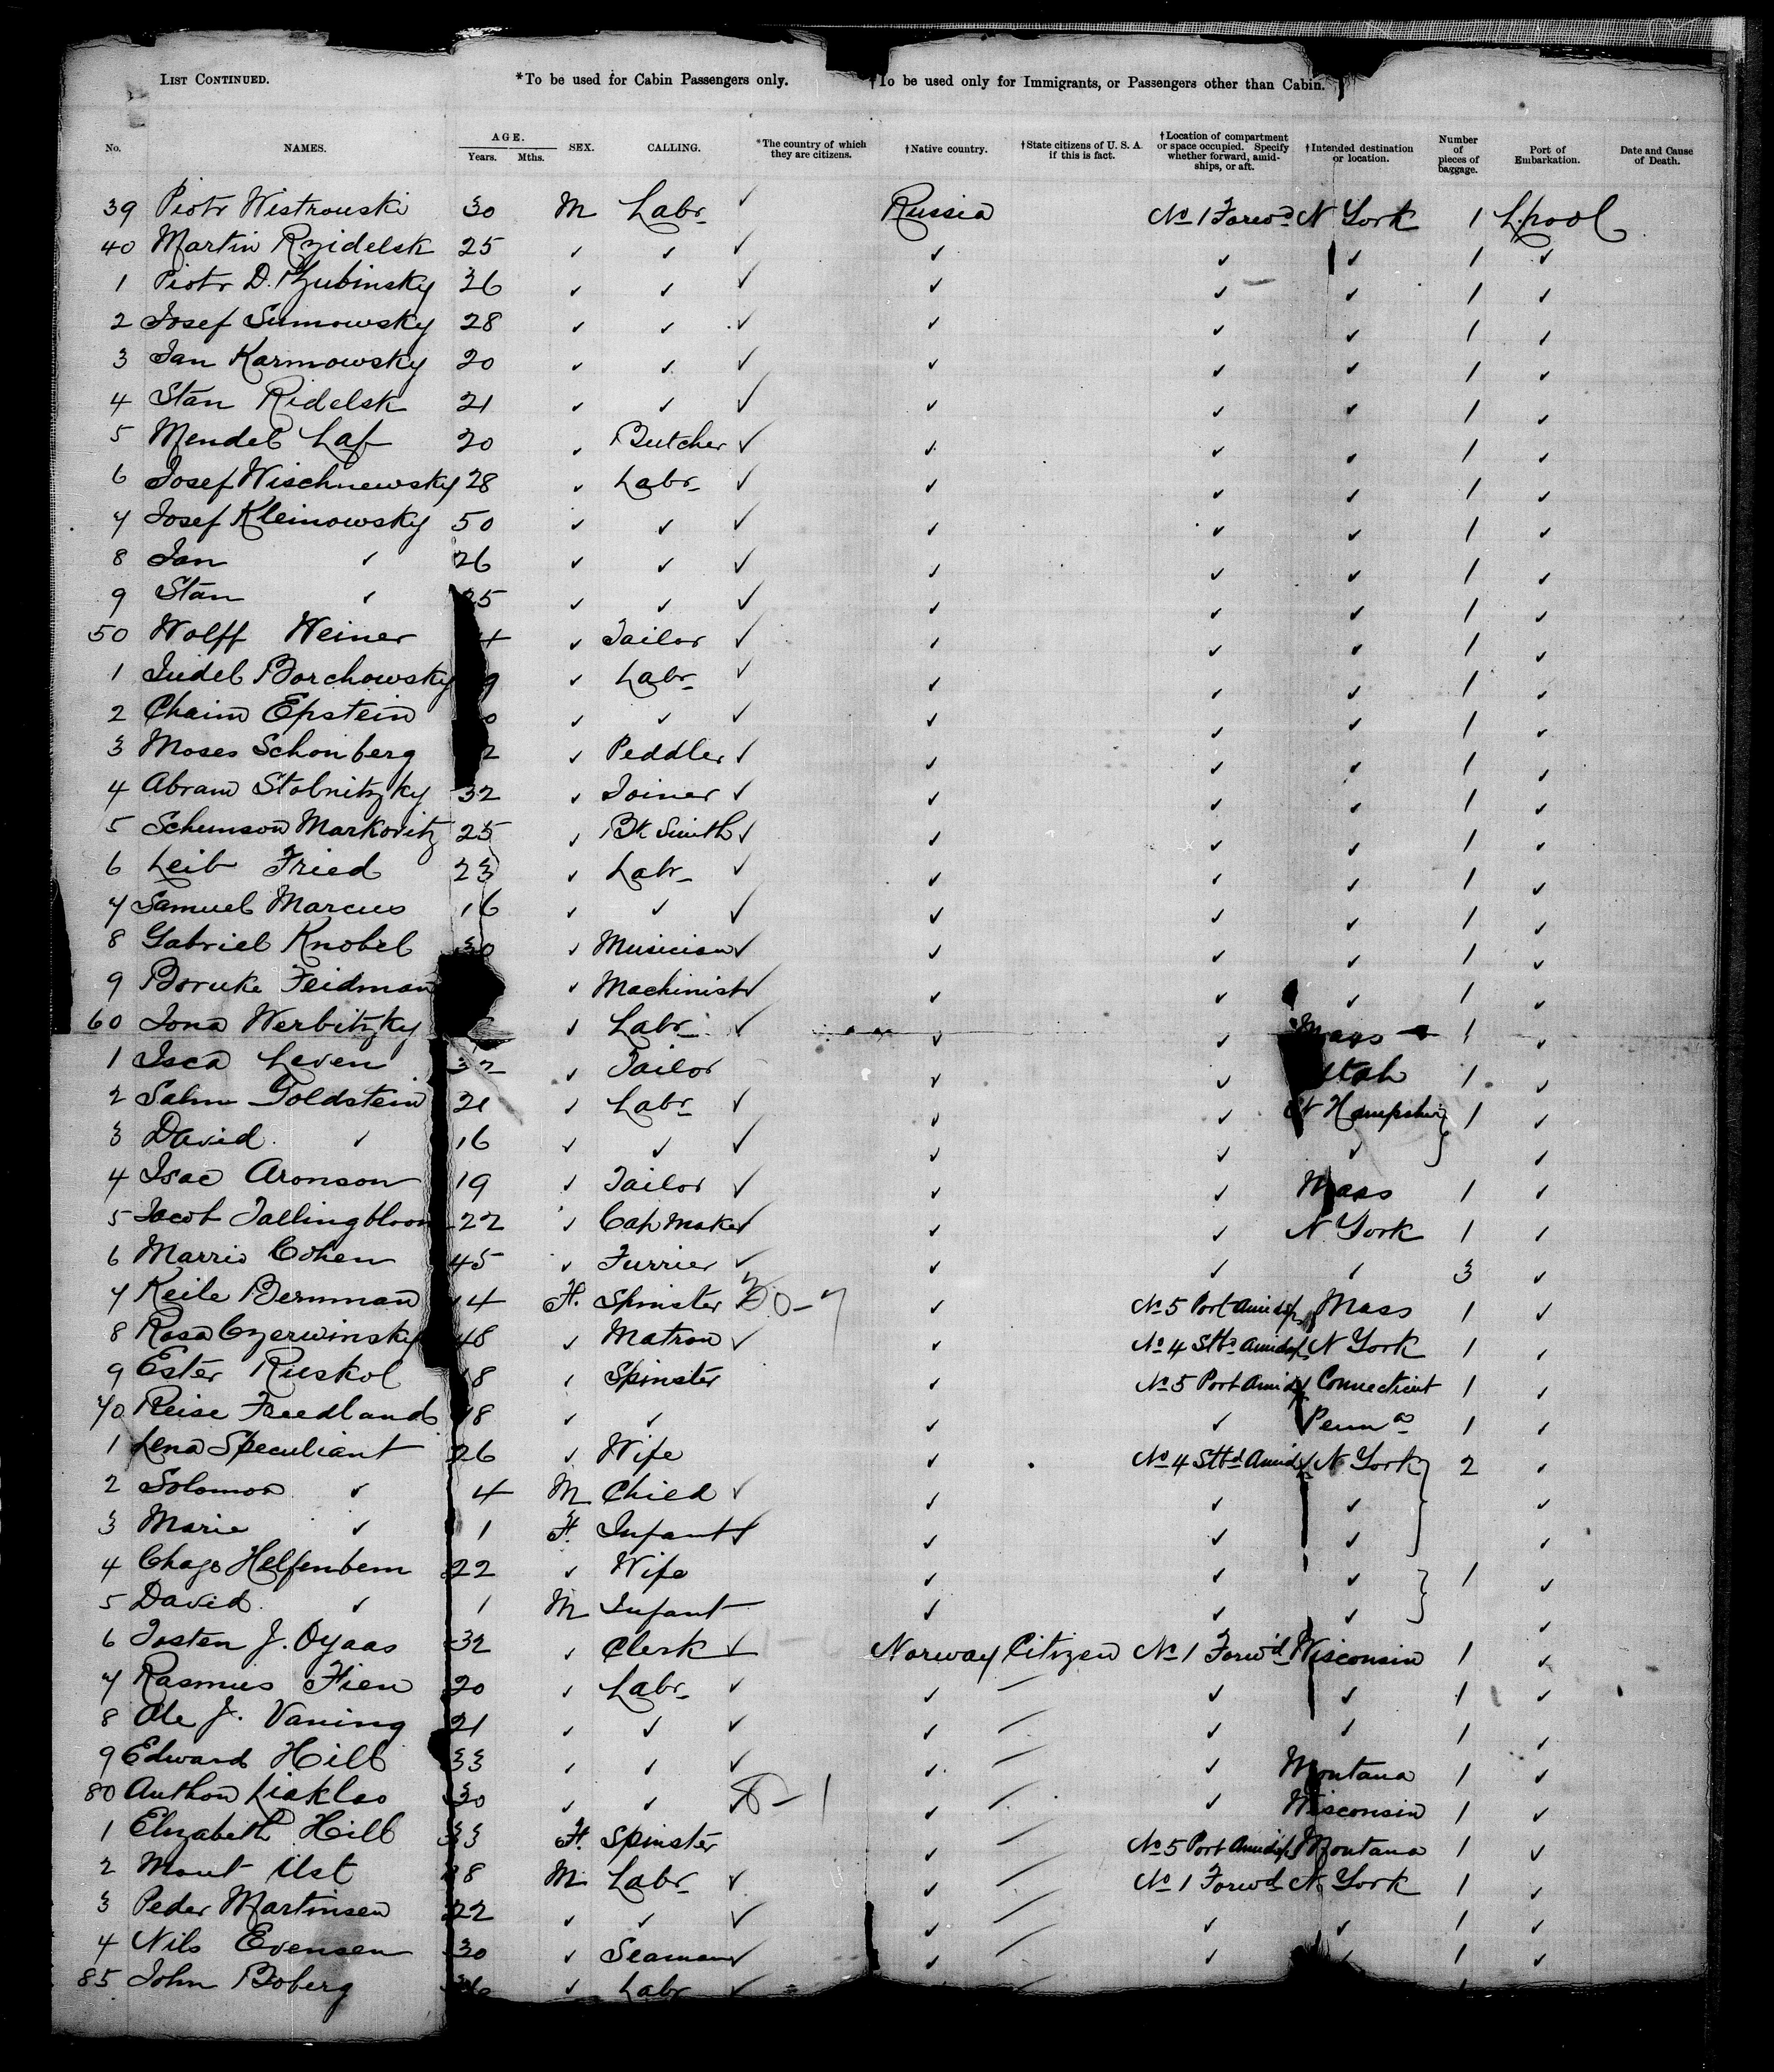 LIST CONTINUED. *To be used for Cabin Passengers only. †To be used only for Immigrants, or Passengers other than Cabin.
No. NAMES. AGE. Years. Mths. SEX. CALLING. *The country of which they are citizens. †Native country. †State citizens of U. S. A. if this is fact. †Location of compartment or space occupied. Specify whether forward, amid-ships, or aft. †Intended destination or location. Number of pieces of baggage. Port of Embarkation. Date and Cause of Death.
39 Piotr Wistrouski 30 M Labr ✓ Russia No 1 Forwd N York 1 L.pool
40 Martin Rzidelsk 25 ✓ ✓ ✓ ✓ ✓ ✓ 1 ✓
1 Piotr D. 26 ✓ ✓ ✓ ✓ ✓ ✓ 1 ✓
2 Josef Sumowsky 28 ✓ ✓ ✓ ✓ ✓ ✓ 1 ✓
3 Jan Karmowsky 20 ✓ ✓ ✓ ✓ ✓ ✓ 1 ✓
4 Stan Ridelsk 21 ✓ ✓ ✓ ✓ ✓ ✓ 1 ✓
5 Mendel Laf 20 ✓ Butcher ✓ ✓ ✓ ✓ 1 ✓
6 Josef Wischnewsky 28 ✓ Labr ✓ ✓ ✓ ✓ 1 ✓
7 Josef Kleinowsky 50 ✓ ✓ ✓ ✓ ✓ ✓ 1 ✓
8 Jan ✓ 26 ✓ ✓ ✓ ✓ ✓ ✓ 1 ✓
9 Stan ✓ 5 ✓ ✓ ✓ ✓ ✓ ✓ 1 ✓
50 Wolff Weiner 4 ✓ Tailor ✓ ✓ ✓ ✓ 1 ✓
1 Judel Borchowsky 9 ✓ Labr ✓ ✓ ✓ ✓ 1 ✓
2 Chaim Epstein 0 ✓ ✓ ✓ ✓ ✓ ✓ 1 ✓
3 Moses Schonberg 2 ✓ Peddler ✓ ✓ ✓ ✓ 1 ✓
4 Abram Stolnitzky 32 ✓ Joiner ✓ ✓ ✓ ✓ 1 ✓
5 Schumson Markovitz 25 ✓ Bk Smith ✓ ✓ ✓ ✓ 1 ✓
6 Leib Fried 23 ✓ Labr ✓ ✓ ✓ ✓ 1 ✓
7 Samuel Marcus 16 ✓ ✓ ✓ ✓ ✓ ✓ 1 ✓
8 Gabriel Knobel 30 ✓ Musician ✓ ✓ ✓ ✓ 1 ✓
9 Boruke Feidman ✓ Machinist ✓ ✓ ✓ ✓ 1 ✓
60 Jona Werbitzky ✓ Labr ✓ ✓ ✓ Mass 1 ✓
1 Isca Leven 32 ✓ Tailor ✓ ✓ Utah 1 ✓
2 Salm Goldstein 21 ✓ Labr ✓ ✓ ✓ N Hampshir 1 ✓
3 David ✓ 16 ✓ ✓ ✓ ✓ ✓ ✓ ✓
4 Isac Aronson 19 ✓ Tailor ✓ ✓ ✓ Mass 1 ✓
5 Jacob Tallingbloom 22 ✓ Cap Maker ✓ ✓ ✓ N York 1 ✓
6 Marris Cohen 45 ✓ Furrier ✓ ✓ ✓ ✓ 3 ✓
7 Keile Bermman 14 F. Spinster ✓ No 5 Port Amidsps Mass 1 ✓
8 Rosa Czerwinsky 48 ✓ Matron ✓ ✓ No 4 Stbd Amidsps N York 1 ✓
9 Ester Ruskol 18 ✓ Spinster ✓ No 5 Port Amidsps Connecticut 1 ✓
70 Reise Freedland 18 ✓ ✓ ✓ ✓ Penna 1 ✓
1 Lena Speculiant 26 ✓ Wife ✓ No 4 Stbd Amidsps N York 2 ✓
2 Solomon ✓ 4 M Child ✓ ✓ ✓ ✓ ✓
3 Marie ✓ 1 F. Infant ✓ ✓ ✓ ✓ ✓
4 Chaje Helfenbein 22 ✓ Wife ✓ ✓ ✓ 1 ✓
5 David ✓ 1 M Infant ✓ ✓ ✓ ✓
6 Tosten J. Oyaas 32 ✓ Clerk ✓ Norway Citizen No 1 Forwd Wisconsin 1 ✓
7 Rasmus Fien 20 ✓ Labr ✓ ✓ ✓ ✓ 1 ✓
8 Ole J. Vaning 21 ✓ ✓ ✓ ✓ ✓ ✓ 1 ✓
9 Edward Hill 33 ✓ ✓ ✓ ✓ ✓ Montana 1 ✓
80 Anthon 30 ✓ ✓ ✓ ✓ Wisconsin 1 ✓
1 Elizabeth Hill 33 F. Spinster ✓ No 5 Port Amidsps Montana 1 ✓
2 8 M Labr ✓ ✓ No 1 Forwd N York 1 ✓
3 Peder Martinsen 22 ✓ ✓ ✓ ✓ ✓ ✓ 1 ✓
4 Nils Evensen 30 ✓ Seaman ✓ ✓ ✓ ✓ 1 ✓
85 John Boberg ✓ Labr ✓